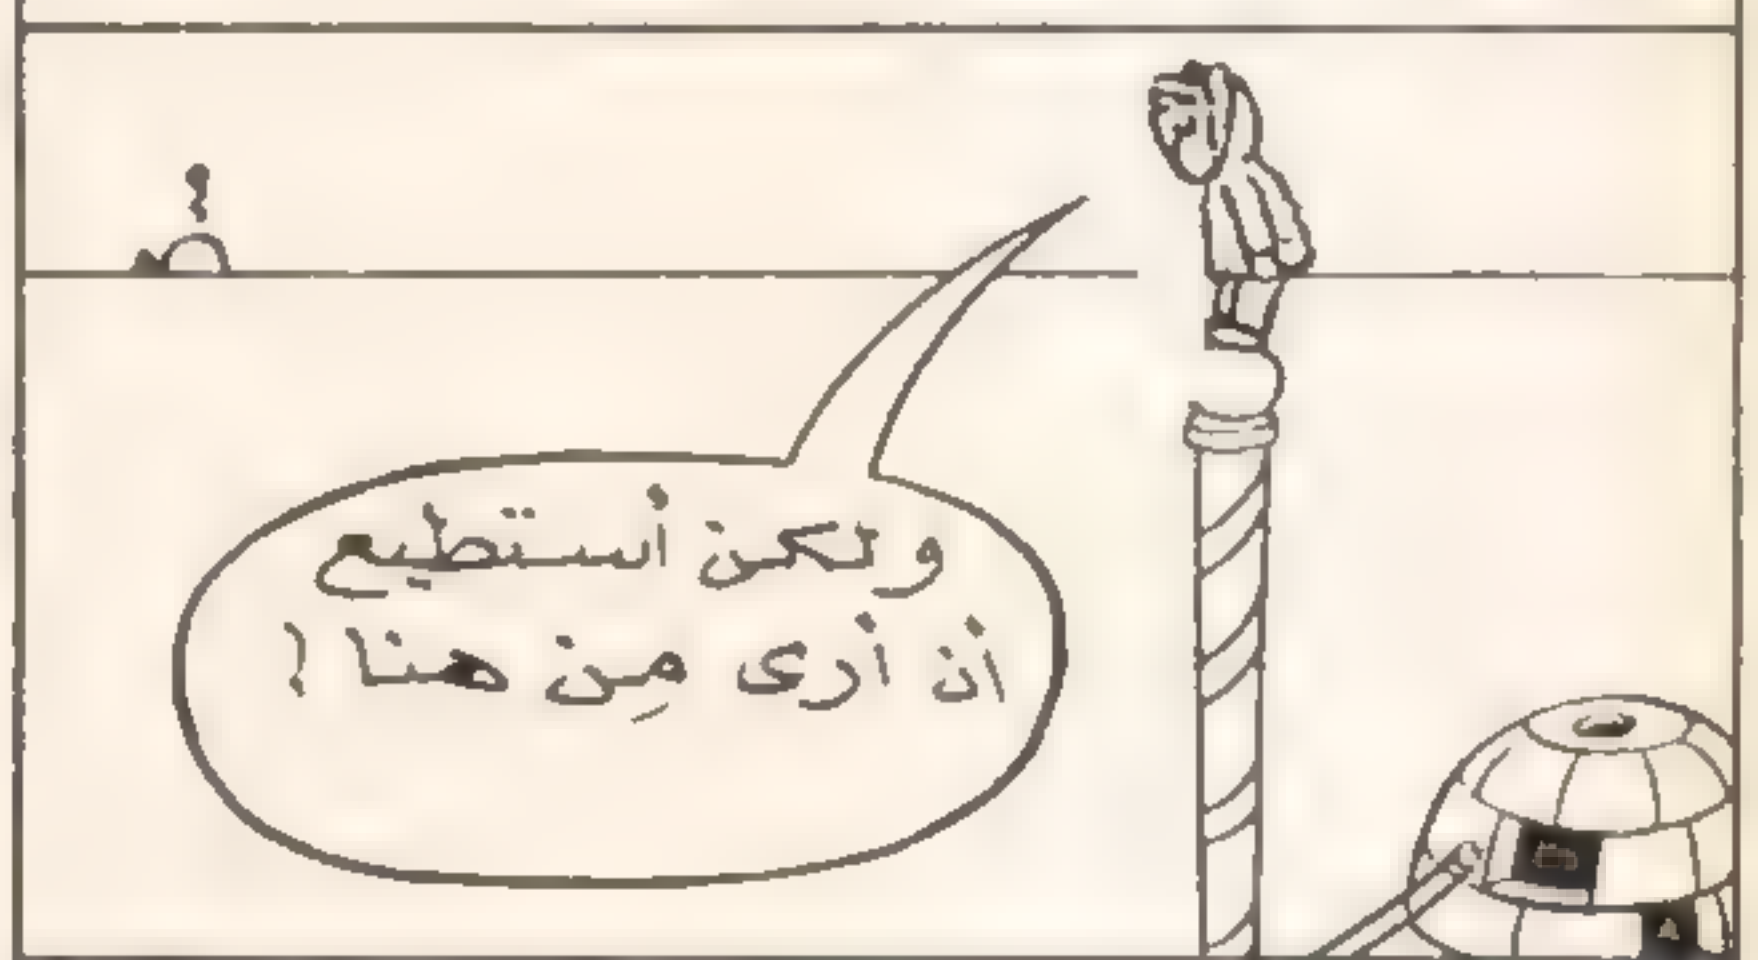 !
ولكن أستطيع
أن أرى مِن هنا !